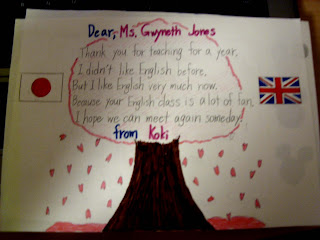 Dear, Ms. Gwyneth Jones
Thank you for teaching for a year.
I didn't like English before.
But I like English very much now.
Because your English class is a lot of fan.
I hope we can meet again someday!
from Koki